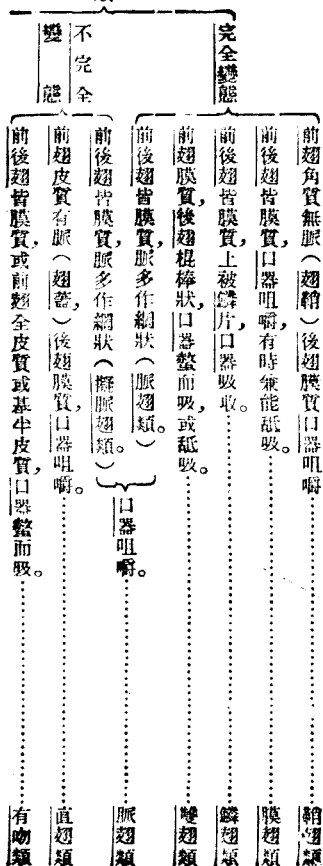 完全變態
前翅角質無脈(翅鞘)後翅膜質口器咀嚼……鞘翅類
前後翅皆膜質,口器咀嚼有時兼能舐吸。……膜翅類
前後翅皆膜質上被鱗片口器吸收。……鱗翅類
前翅膜質,後翅棍棒狀,口器螫而吸,或舐吸。……雙翅類
前後翅皆膜質,脈多作網狀(脈翅類。)
口器咀嚼。……脈翅類
不完全變態
前後翅皆膜質,脈多作網狀(擬脈翅類。)
前翅皮質有脈(翅蓋)後翅膜質,口器咀嚼。……直翅類
前後翅皆膜質,或前翅全皮質或基半皮質,口器螫而吸。……有吻類